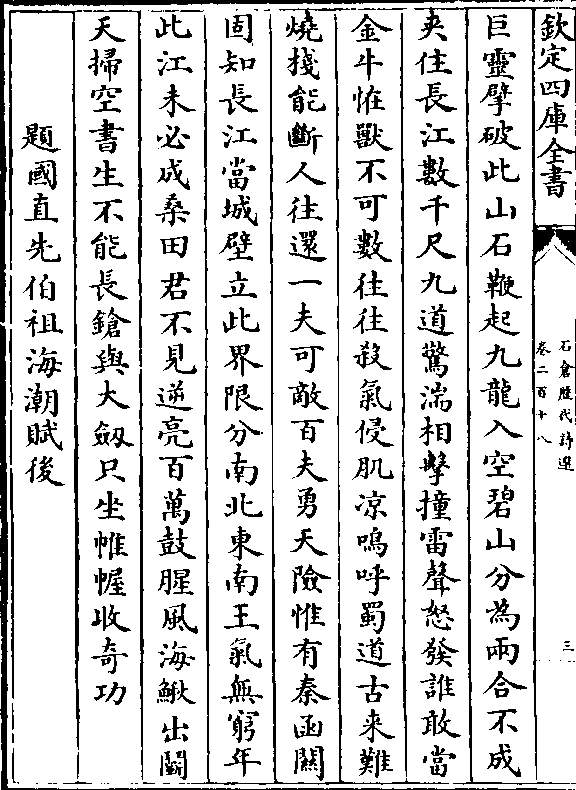 欽定四庫全書
石倉歷代詩選
卷二百十八
三
巨靈擘破此山石鞭起九龍入空碧山分為兩合不成
夾住長江數千尺九道驚湍相擊撞雷聲怒發誰敢當
金牛恠獸不可數往往殺氣侵肌凉嗚呼蜀道古来難
燒棧能斷人往還一夫可敵百夫勇天險惟有秦函關
固知長江當城壁立此界限分南北東南王氣無窮年
此江未必成桑田君不見逆亮百萬鼓腥風海鰍出鬭
天掃空書生不能長鎗與大劔只坐帷幄收奇功
題國直先伯祖海潮賦後